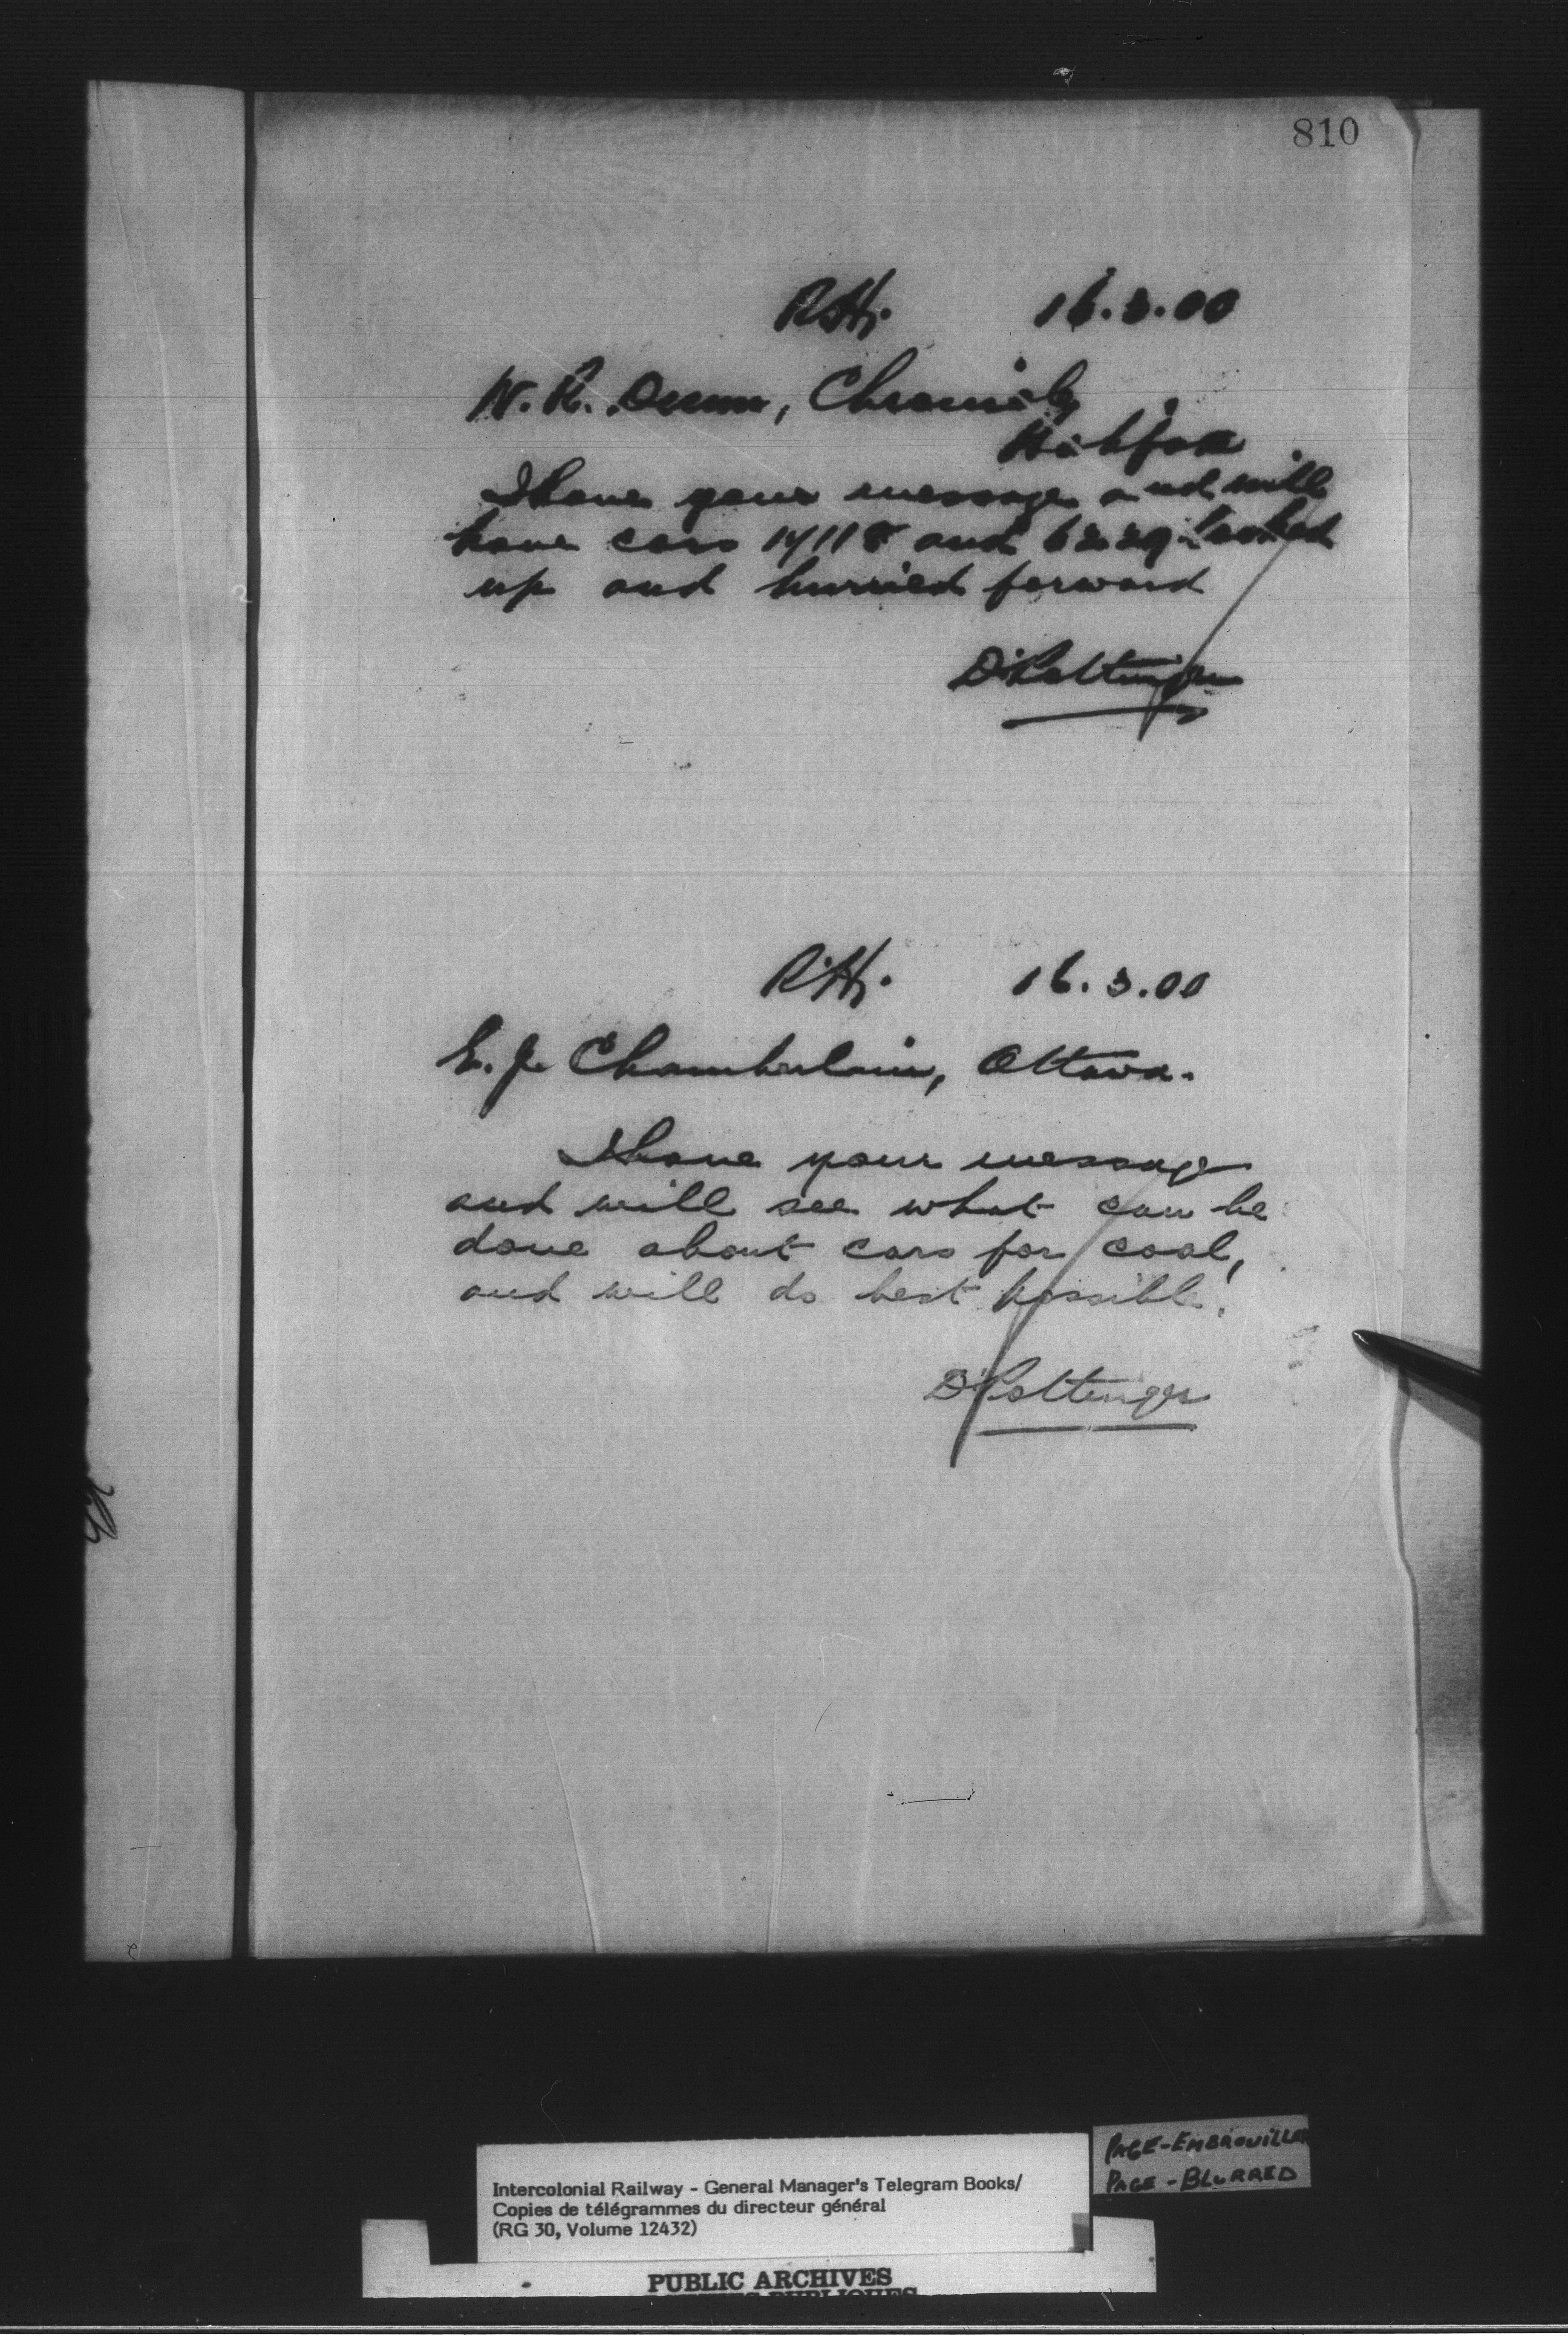 810
RyHy. 16.3.00
W. R. Dunn, Chronicle,
Halifax
I have your message and will
have cars 14118 and 62229 looked
up and hurried forward
D. Pottinger
RyHy. 16.3.00
E. J. Chamberlain, Ottawa.
I have your message
and will see what can be
done about cars for coal,
and will do best possible.
D. Pottinger
PAGE-EMBROUILLÉE
PAGE-BLURRED
Intercolonial Railway - General Manager's Telegram Books/
Copies de télégrammes du directeur général
(RG 30, Volume 12432)
PUBLIC ARCHIVES